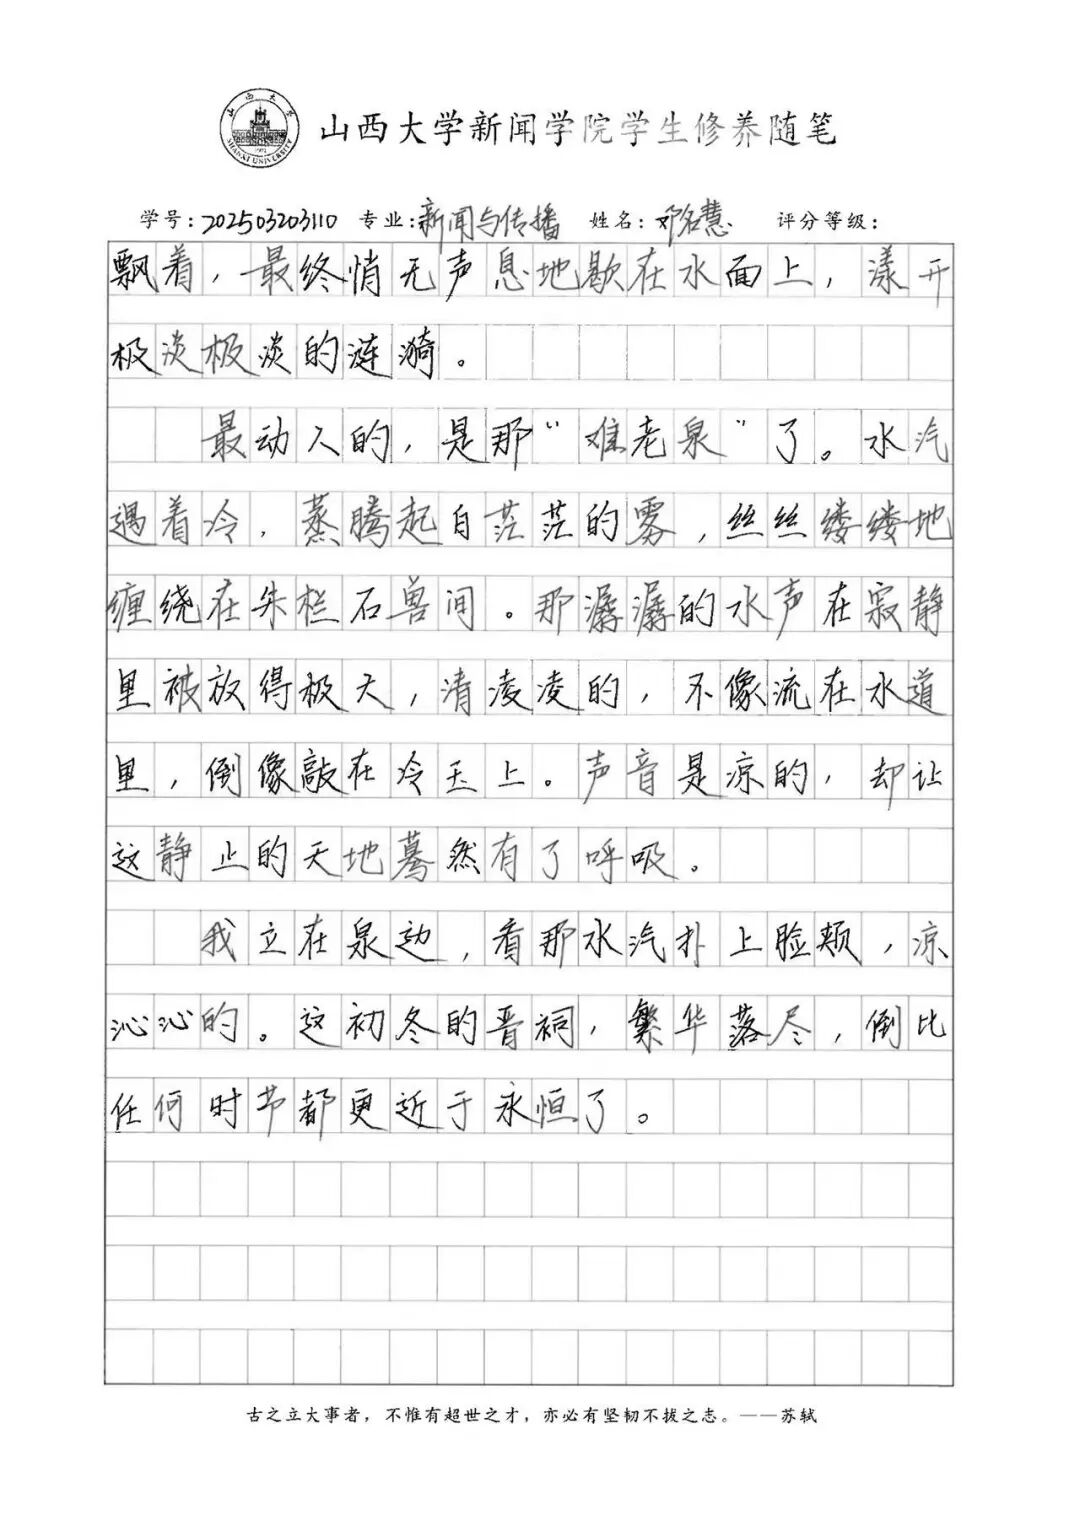 山西大学新闻学院学生修养随笔
学号：202503203110 专业：新闻与传播 姓名：邓名慧 评分等级：
飘着，最终悄无声息地歇在水面上，漾开
极淡极淡的涟漪。
最动人的，是那“难老泉”了。水汽
遇着冷，蒸腾起白茫茫的雾，丝丝缕缕地
缠绕在朱栏石兽间。那潺潺的水声在寂静
里被放得极大，清凌凌的，不像流在水道
里，倒像敲在冷玉上。声音是凉的，却让
这静止的天地蓦然有了呼吸。
我立在泉边，看那水汽扑上脸颊，凉
沁沁的。这初冬的晋祠，繁华落尽，倒比
任何时节都更近于永恒了。
古之立大事者，不惟有超世之才，亦必有坚韧不拔之志。——苏轼